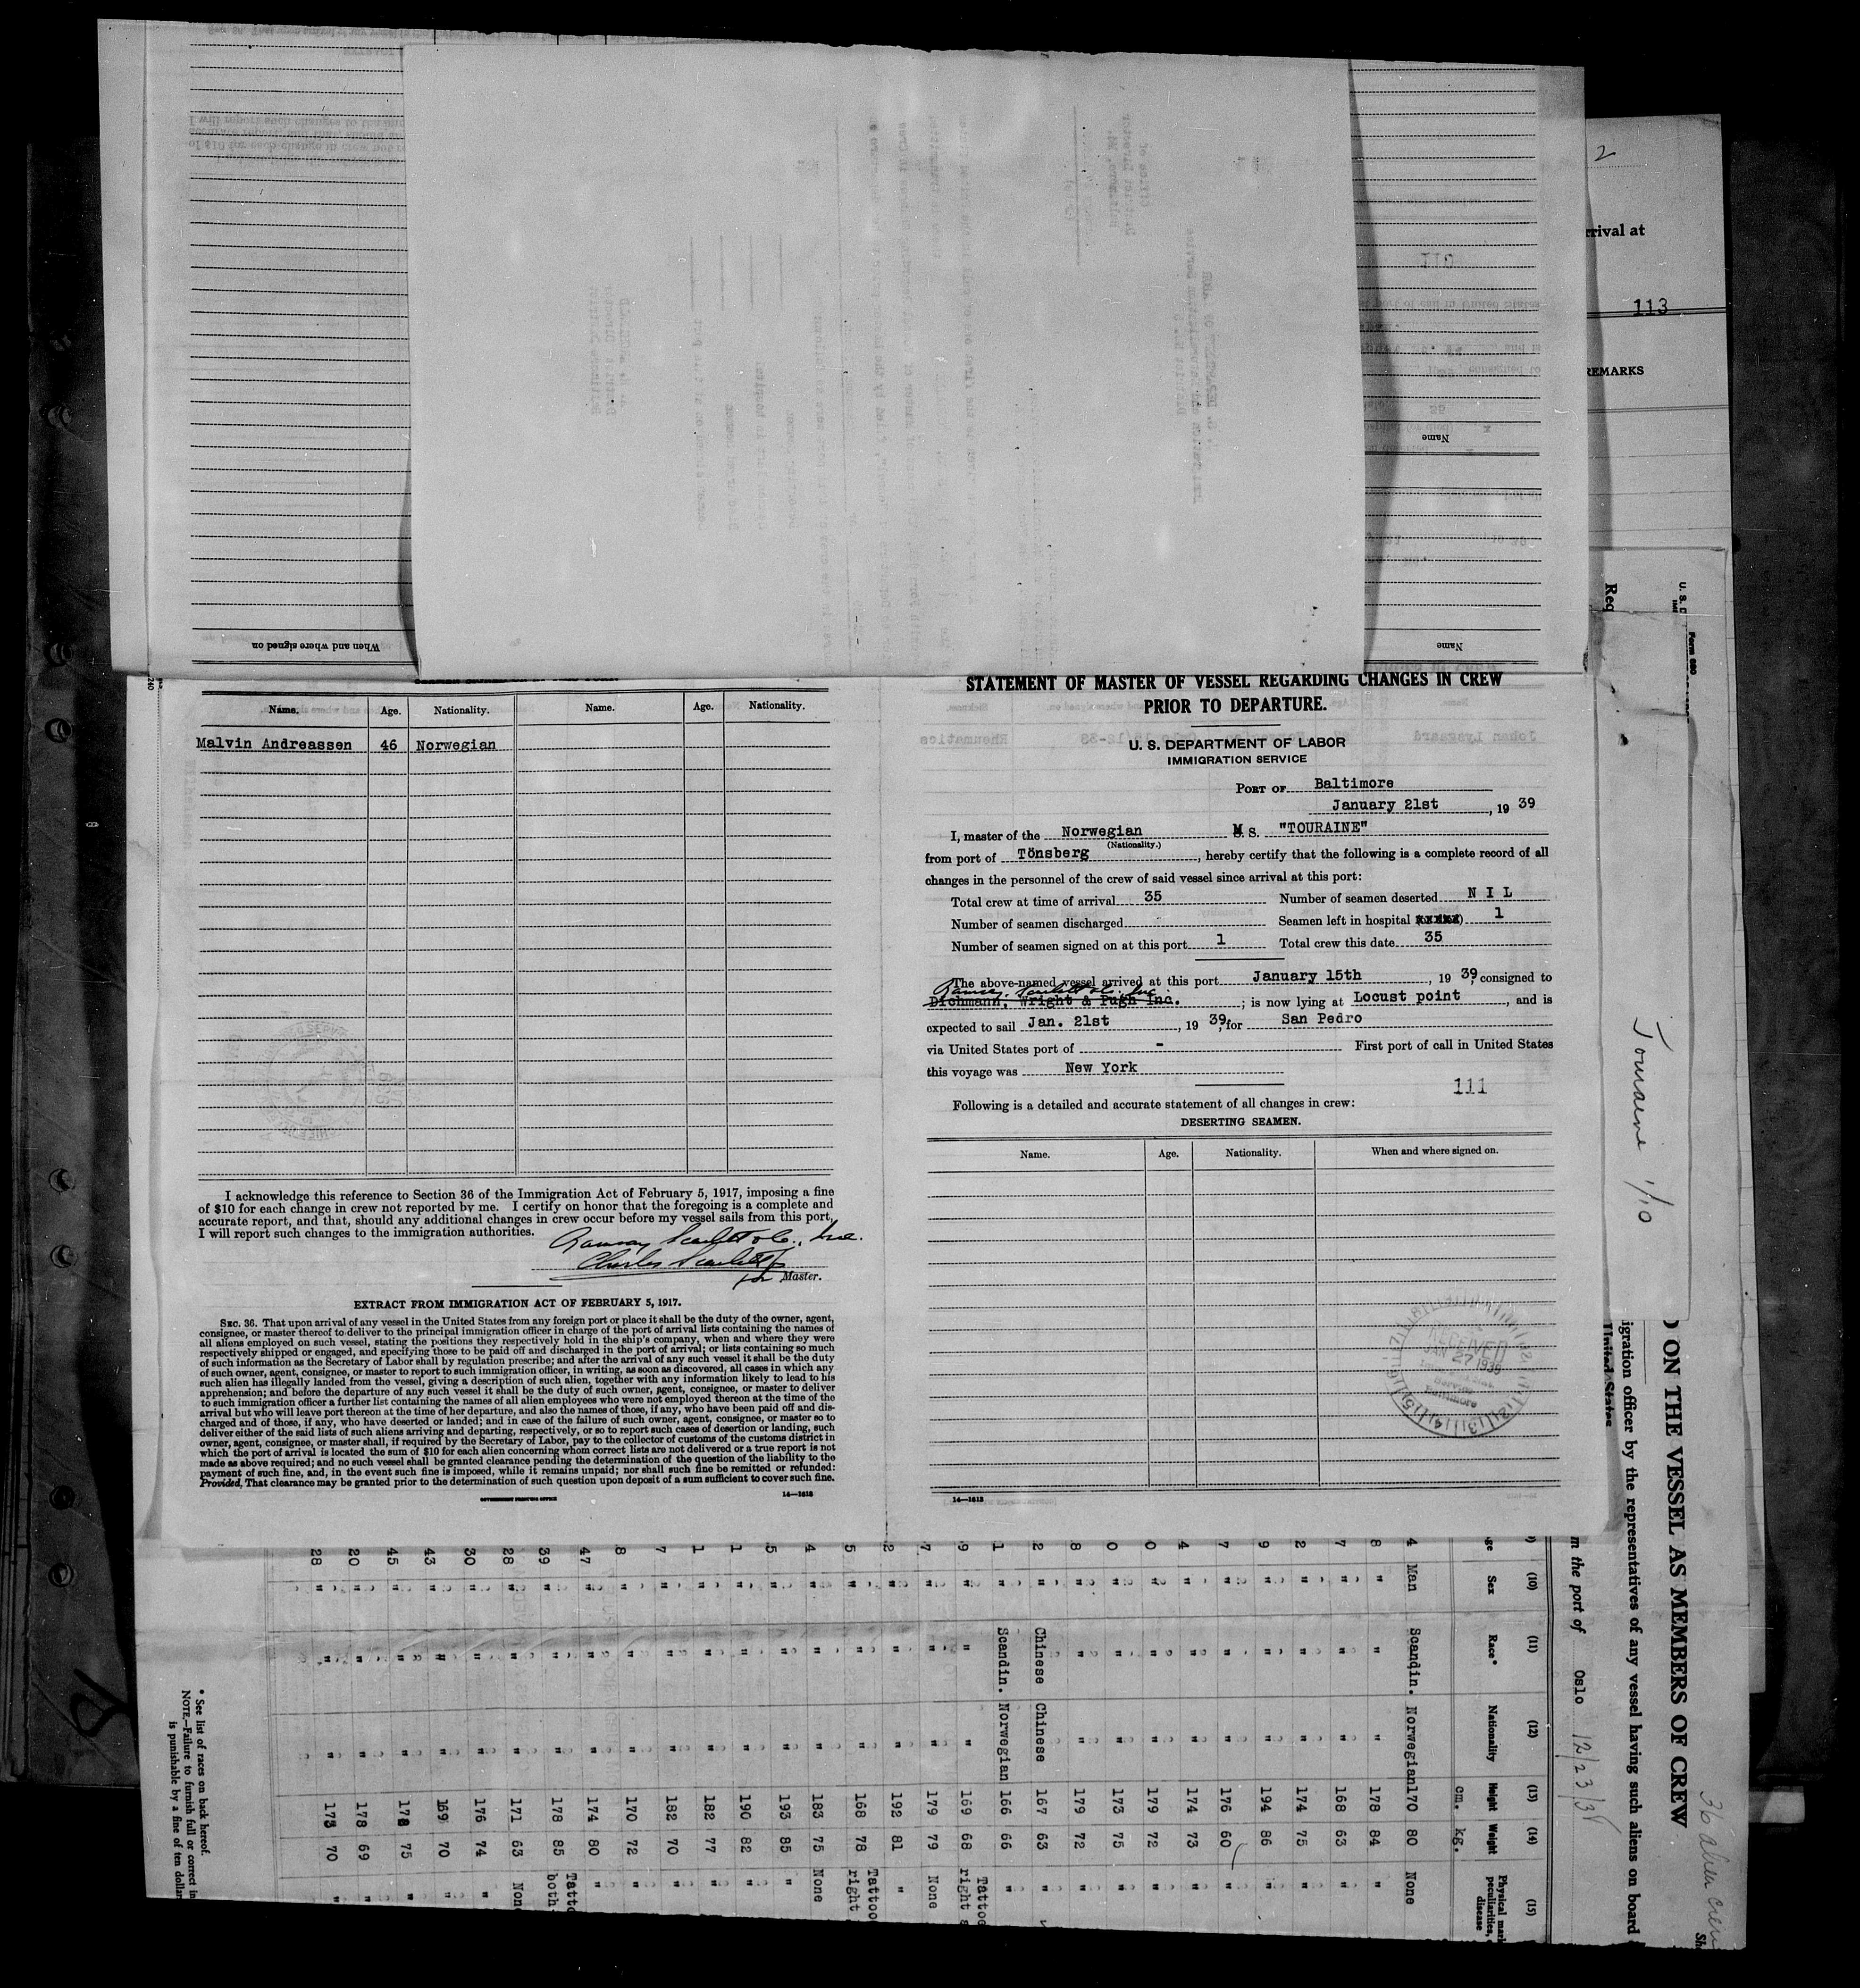 2
rrival at
113
REMARKS
Name
When and where signed on
Name
Name. Age. Nationality. Name. Age. Nationality.
Malvin Andreassen 46 Norwegian
I acknowledge this reference to Section 36 of the Immigration Act of February 5, 1917, imposing a fine
of $10 for each change in crew not reported by me. I certify on honor that the foregoing is a complete and
accurate report, and that, should any additional changes in crew occur before my vessel sails from this port,
I will report such changes to the immigration authorities.
Ramsay Scarlett & Co., Inc.
Charles Scarlett Jr
for Master.
EXTRACT FROM IMMIGRATION ACT OF FEBRUARY 5, 1917.
SEC. 36. That upon arrival of any vessel in the United States from any foreign port or place it shall be the duty of the owner, agent,
consignee, or master thereof to deliver to the principal immigration officer in charge of the port of arrival lists containing the names of
all aliens employed on such vessel, stating the positions they respectively hold in the ship's company, when and where they were
respectively shipped or engaged, and specifying those to be paid off and discharged in the port of arrival; or lists containing so much
of such information as the Secretary of Labor shall by regulation prescribe; and after the arrival of any such vessel it shall be the duty
of such owner, agent, consignee, or master to report to such immigration officer, in writing, as soon as discovered, all cases in which any
such alien has illegally landed from the vessel, giving a description of such alien, together with any information likely to lead to his
apprehension; and before the departure of any such vessel it shall be the duty of such owner, agent, consignee, or master to deliver
to such immigration officer a further list containing the names of all alien employees who were not employed thereon at the time of the
arrival but who will leave port thereon at the time of her departure, and also the names of those, if any, who have been paid off and dis-
charged and of those, if any, who have deserted or landed; and in case of the failure of such owner, agent, consignee, or master so to
deliver either of the said lists of such aliens arriving and departing, respectively, or so to report such cases of desertion or landing, such
owner, agent, consignee, or master shall, if required by the Secretary of Labor, pay to the collector of customs of the customs district in
which the port of arrival is located the sum of $10 for each alien concerning whom correct lists are not delivered or a true report is not
made as above required; and no such vessel shall be granted clearance pending the determination of the question of the liability to the
payment of such fine, and, in the event such fine is imposed, while it remains unpaid; nor shall such fine be remitted or refunded:
Provided, That clearance may be granted prior to the determination of such question upon deposit of a sum sufficient to cover such fine.
GOVERNMENT PRINTING OFFICE 14—1613
STATEMENT OF MASTER OF VESSEL REGARDING CHANGES IN CREW
PRIOR TO DEPARTURE.
U. S. DEPARTMENT OF LABOR
IMMIGRATION SERVICE
PORT OF Baltimore
January 21st, 19 39
I, master of the Norwegian M S. "TOURAINE"
(Nationality.)
from port of Tönsberg, hereby certify that the following is a complete record of all
changes in the personnel of the crew of said vessel since arrival at this port:
Total crew at time of arrival 35 Number of seamen deserted N I L
Number of seamen discharged - Seamen left in hospital xxxxx) 1
Number of seamen signed on at this port 1 Total crew this date 35
The above-named vessel arrived at this port January 15th, 19 39, consigned to
Ramsay, Scarlett & Co. Inc
Dichmann, Wright & Pugh Inc.; is now lying at Locust point, and is
expected to sail Jan. 21st, 19 39, for San Pedro
via United States port of - First port of call in United States
this voyage was New York
111
Following is a detailed and accurate statement of all changes in crew:
DESERTING SEAMEN.
Name. Age. Nationality. When and where signed on.
RECEIVED
JAN 27 1939
Baltimore
14—1613
Form 680
U. S. D
Req
Touraine 1/10
) ON THE VESSEL AS MEMBERS OF CREW
igration officer by the representatives of any vessel having such aliens on board
United States
m the port of Oslo 12/23/38
36 alien crew
Sh
(10) (11) (12) (13) (14) (15)
ge Sex Race* Nationality Height Weight Physical mark
peculiarities,
disease
cm. kg.
4 Man Scandin. Norwegian 170 80 None
8 " " " 178 84 "
7 " " " 168 63 "
2 " " " 174 75 "
9 " " " 194 86 "
7 " " " 176 60 "
4 " " " 174 73 "
0 " " " 179 72 "
0 " " " 173 75 "
8 " " " 179 72 "
2 " Chinese Chinese 167 63 "
1 " Scandin. Norwegian 166 66 "
9 " " " 169 68 Tattoo
right a
7 " " " 179 79 None
2 " " " 192 81 "
5 " " " 168 78 Tattoo
right
4 " " " 183 75 None
5 " " " 193 85 "
1 " " " 190 82 "
1 " " " 182 77 "
7 " " " 182 70 "
8 " " " 170 72 "
47 " " " 174 80 "
39 " " " 178 85 Tatto
both
28 " " " 171 63 Non
30 " " " 176 74 "
43 " " " 169 70 "
45 " " " 178 75 "
20 " " " 178 69 "
28 " " " 173 70 "
* See list of races on back hereof.
NOTE.—Failure to furnish full or correct in
is punishable by a fine of ten dollar